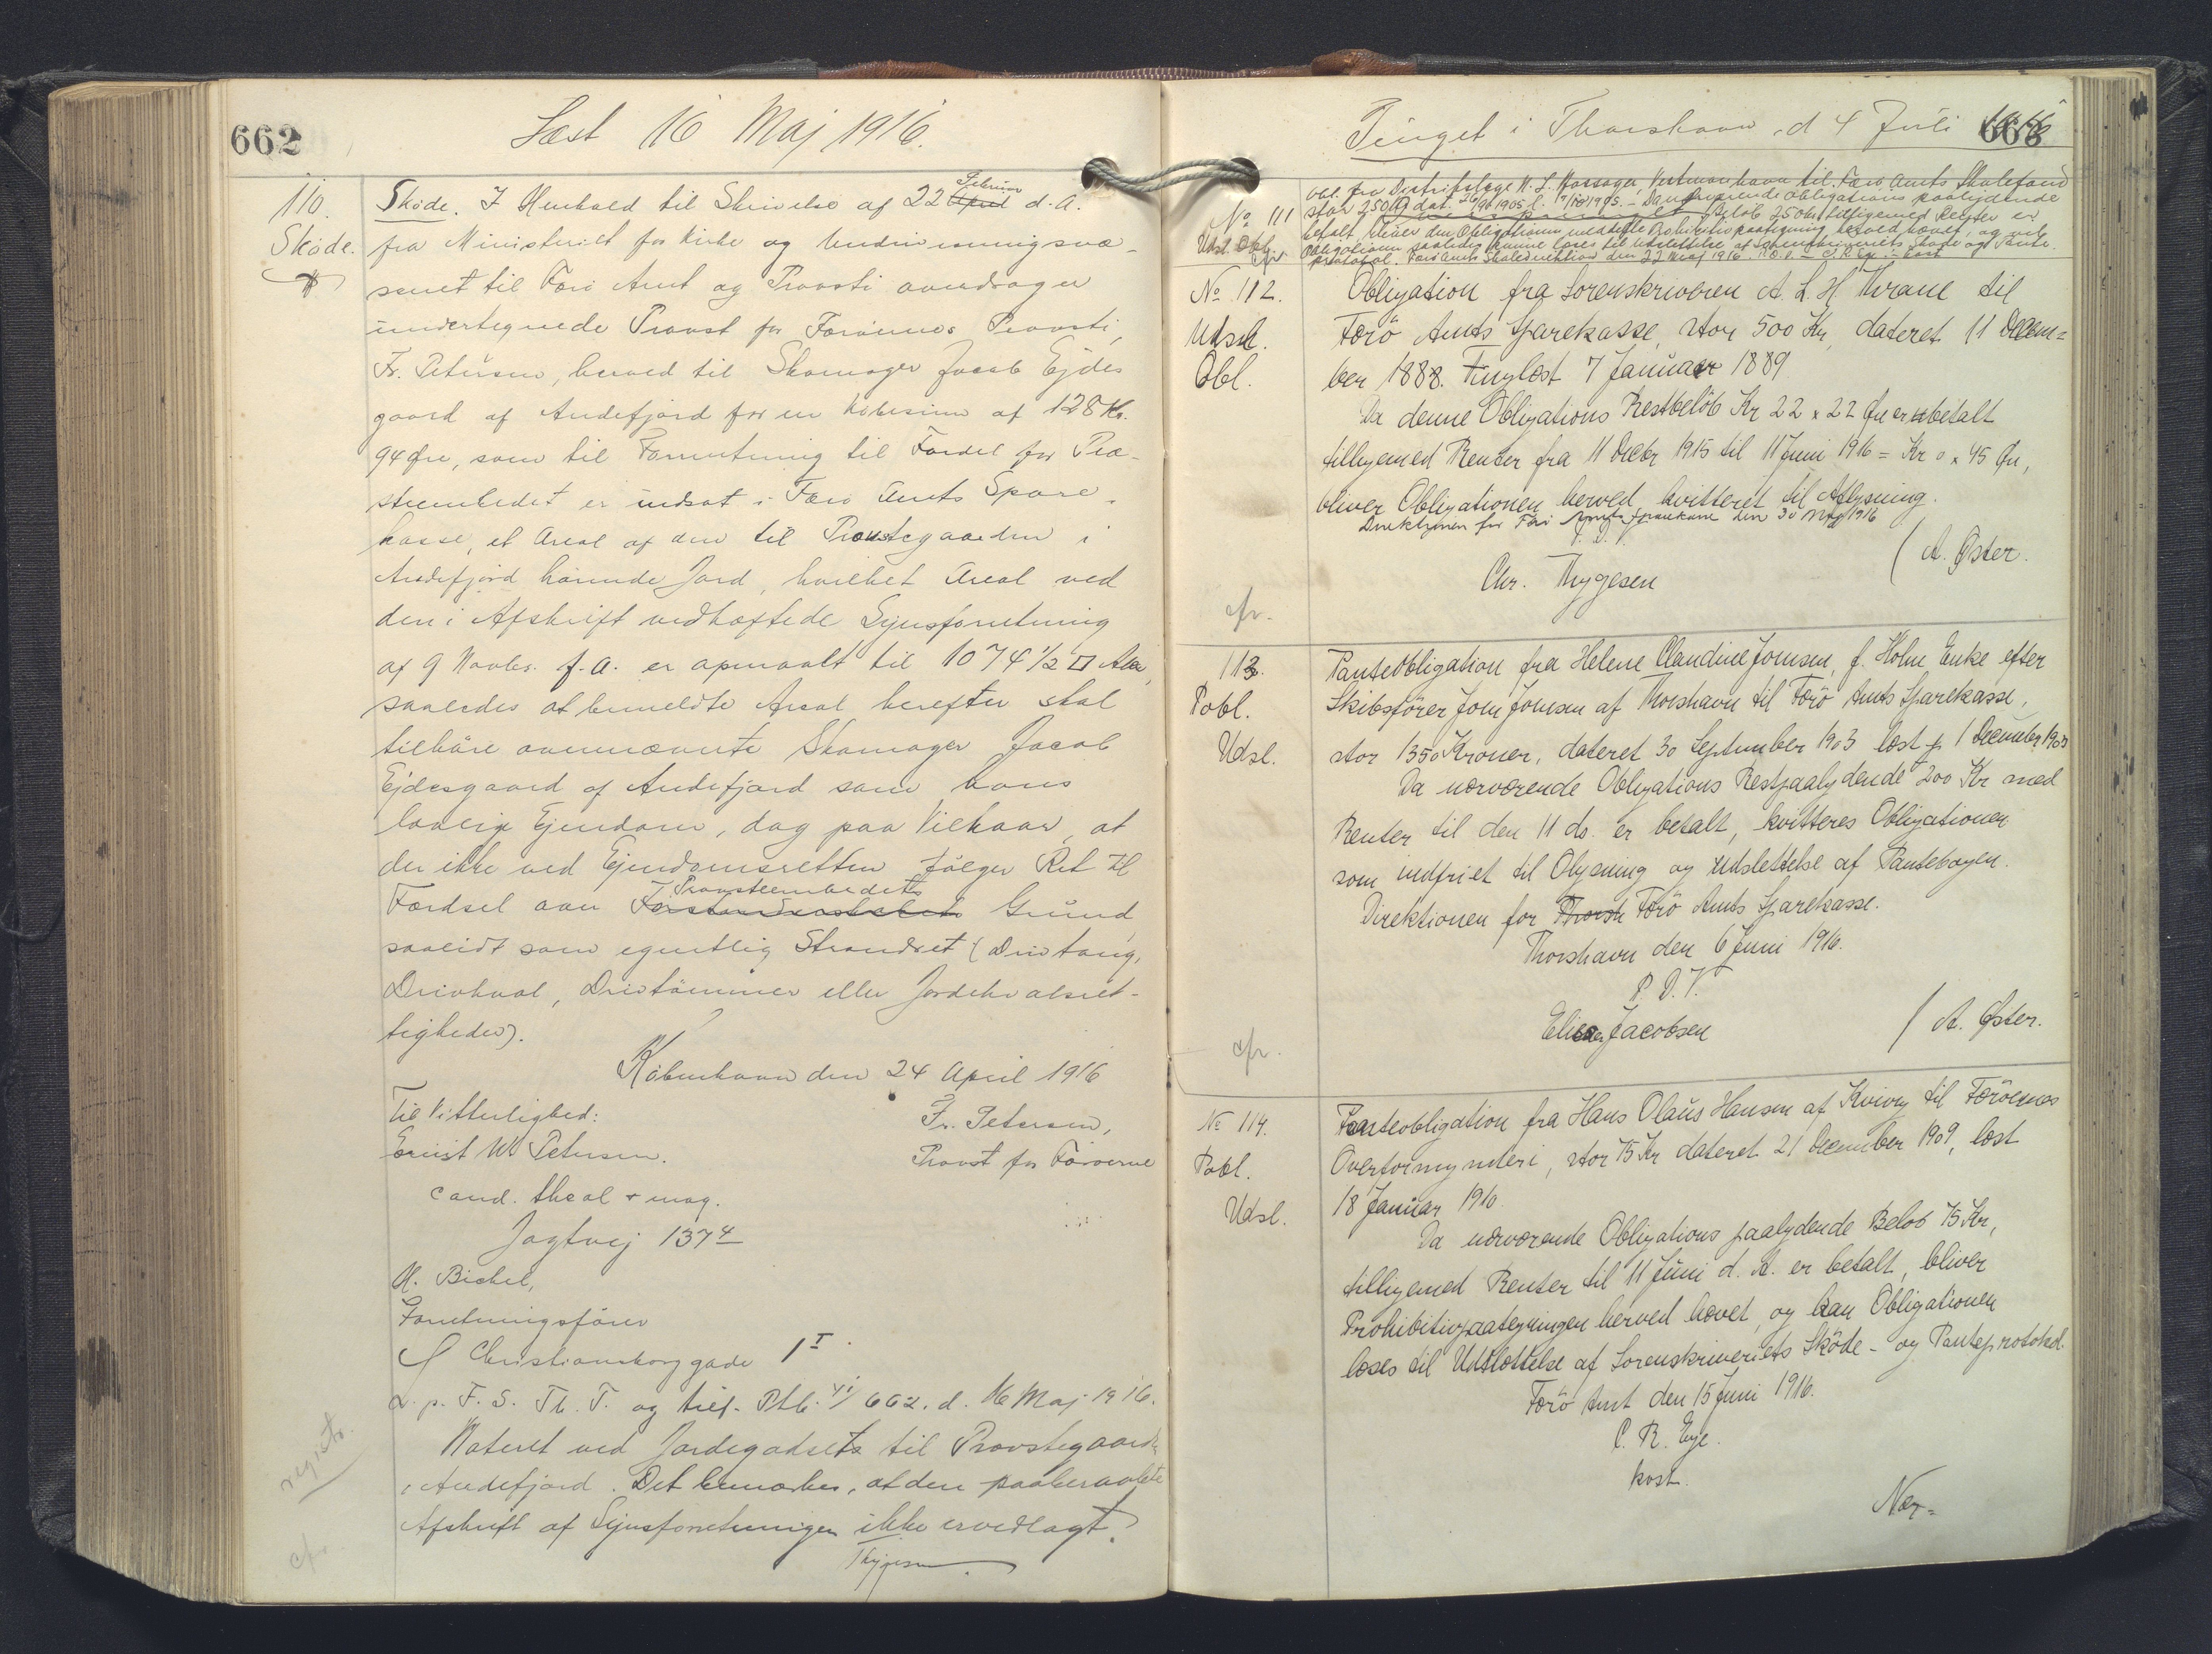 662
Læst 16 Maj 1916.
110.
Skøde.
Skøde. I Henhold til Skrivelse af 22 Februar April d. A.
fra Ministeriet for Kirke og Undervisningsvæ-
senet til Færø Amt og Provsti overdrager
undertegnede Provst for Færøernes Provsti,
Fr. Petersen, herved til Skomager Jacob Ejdes
gaard af Andefjord for en Købesum af 128 Kr.
94 Øre, som til Forrentning til Fordel for Præ-
steembedet er indsat i Færø Amts Spare-
kasse, et Areal af den til Provstegaarden i
Andefjord hørende Jord, hvilket Areal ved
den i Afskrift vedhæftede Synsforretning
af 9 Novbr. f. A. er opmaalt til 1074 1/2 □ Alen,
saaledes at bemeldte Areal herefter skal
tilhøre ovennævnte Skomager Jacob
Ejdesgaard af Andefjord som hans
lovlige Ejendom, dog paa Vilkaar, at
der ikke ved Ejendomsretten følger Ret til
Provsteembedets
Færdsel over Grund,
saalidt som egentlig Strandret (Drivtang,
Drivhval, Drivtømmer eller Jordehvalsret-
tigheder).
København den 24 April 1916
Til Vitterlighed:
Fr. Petersen,
Ernst W Petersen.
Provst for Færøerne
cand. theol & mag.
Jagtvej 137 4
H. Bickel,
Forretningsfører
Christiansborggade 1 I
L. p. F. S. Th. T. og tilf. Ptb. 662. d. 16 Maj 1916.
Noteret ved Jordegodsets til Provstegaarden
i Andefjord. Det bemærkes, at den paaberaabte
Afskrift af Synsforretningen ikke er vedlagt.
Thygesen
registr.
cfr.
Tinget i Thorshavn d 4 Juli 1916
663
No 111
Udsl. Obl.
cfr
Obl. fra Distriktslæge Vestmanhavn til Færø Amts Skolefond
stor 250 dat. 1905 l. 1905. - Da nærværende Obligations paalydende
Beløb 250 Kr tilligemed Renter er
betalt bliver den Obligationen meddelte Prohibitivpaategning herved hævet, og vil
Obligationen saaledes kunne læses til Udslettelse af Sorenskriveriets Skøde og Pante-
protokol. Færø Amts Skoledirektion den 22 Maj 1916.
No 112.
Udsl.
Obl.
Obligation fra Sorenskriveren A. L. H. Krane til
Færø Amts Sparekasse, stor 500 Kr, dateret 11 Decem=
ber 1888. Tinglæst 7 Januar 1889
Da denne Obligations Restbeløb Kr 22 x 22 Øre er betalt
tilligemed Renter fra 11 Decbr 1915 til 11 Juni 1916 = Kr 0 x 45 Øre,
bliver Obligationen herved kvitteret til Aflysning.
Direktionen for Færø Amts Sparekasse den 30 Maj 1916
P. D. V.
Chr. Thygesen
/ A. Øster.
cfr.
113.
Pobl.
Udsl.
Panteobligation fra Helene Claudine Joensen, f. Holm Enke efter
Skibsfører Joen Joensen af Thorshavn til Færø Amts Sparekasse,
stor 1350 Kroner, dateret 30 September 1903 læst p 1 December 1903
Da nærværende Obligations Restpaalydende 200 Kr med
Renter til den 11 ds. er betalt, kvitteres Obligationen
som indfriet til Olysning og Udslettelse af Pantebogen.
Direktionen for Thorsh Færø Amts Sparekasse.
Thorshavn den 6 Juni 1916.
P. D. V.
Elieser Jacobsen
/ A. Øster.
cfr.
No 114.
Pobl.
Udsl.
Panteobligation fra Hans Olaus Hansen af Kvivig til Færøernes
Overformynderi, stor 75 Kr dateret 21 December 1909, læst
18 Januar 1910.
Da nærværende Obligations paalydende Beløb 75 Kr,
tilligemed Renter til 11 Juni d. A. er betalt, bliver
Prohibitivpaategningen herved hævet, og kan Obligationen
læses til Udslettelse af Sorenskriveriets Skøde- og Panteprotokol.
Færø Amt den 15 Juni 1916.
C. R. Eye.
kost.
Nær=